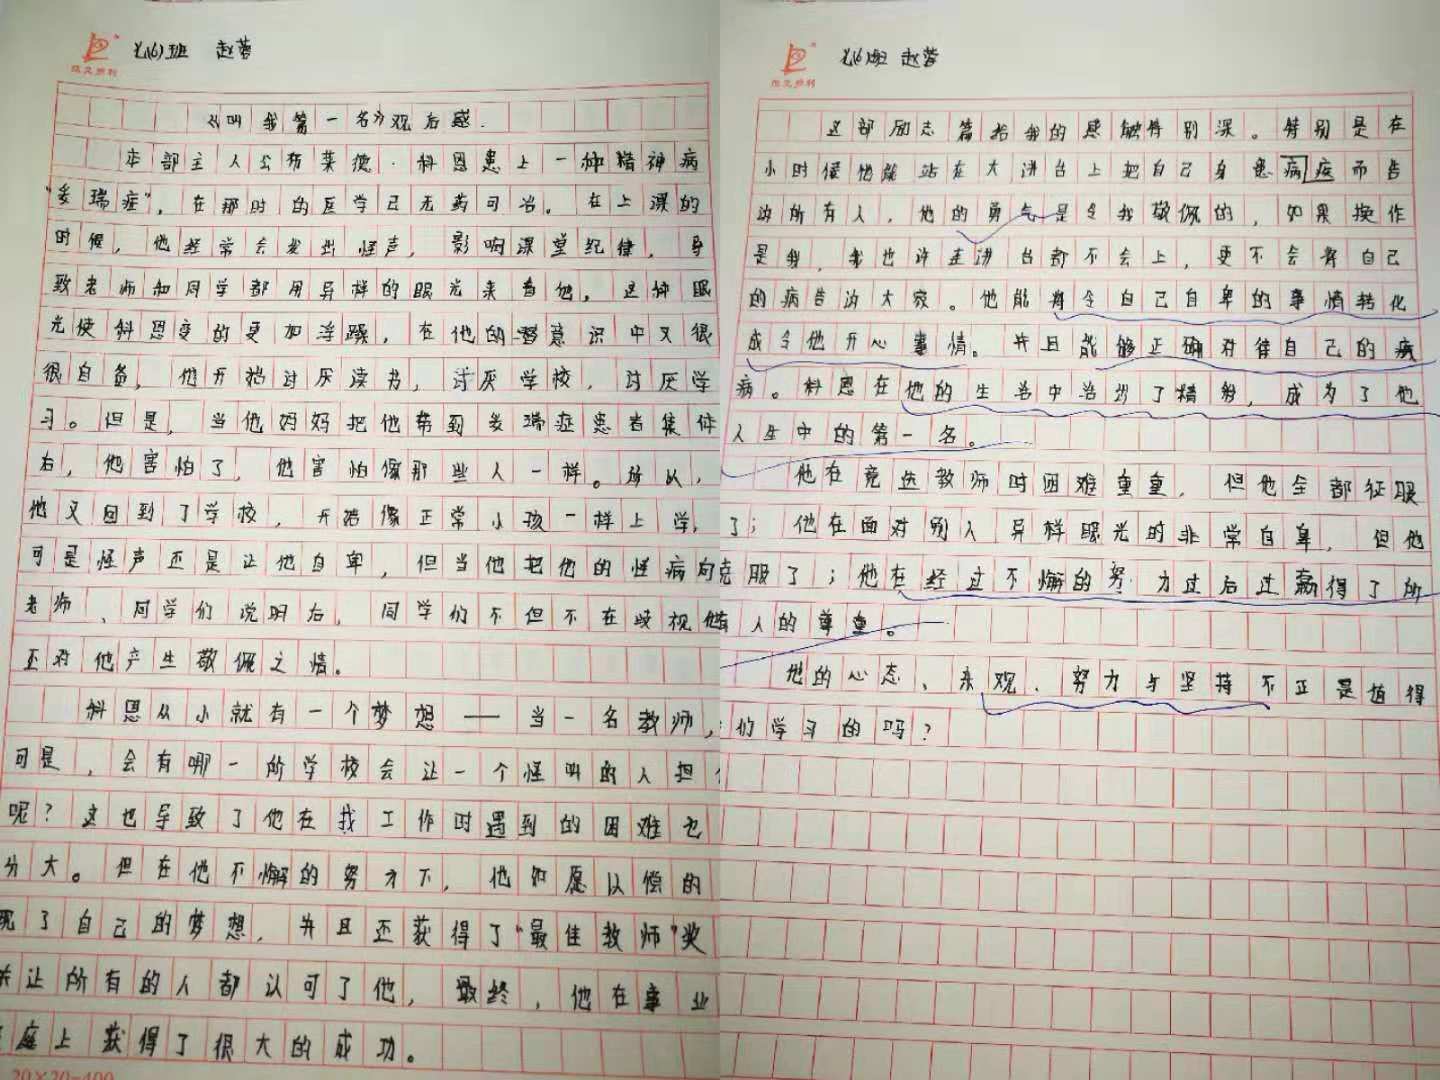 七(6)班 赵蓉
《叫我第一名》观后感.
本部主人公布莱德·科恩患上一种精神病
"妥瑞症"，在那时的医学已无药可治。在上课的
时候，他经常会发出怪声，影响课堂纪律，导
致老师和同学都用异样的眼光来看他，这种眼
光使科恩变的更加浮躁，在他的潜意识中又很
很自备，他开始讨厌读书，讨厌学校，讨厌学
习。但是，当他妈妈把他带到妥瑞症患者集体
右，他害怕了，他害怕像那些人一样。所以，
他又回到了学校，开始像正常小孩一样上学，
可是怪声还是让他自卑，但当他把他的怪病向
老师、同学们说明后，同学们不但不在歧视他
还对他产生敬佩之情。
科恩从小就有一个梦想——当一名教师，
可是，会有哪一所学校会让一个怪叫的人担
呢？这也导致了他在找工作时遇到的困难也
分大。但在他不懈的努力下，他如愿以偿的
现了自己的梦想，并且还获得了"最佳教师"奖
让所有的人都认可了他，最终，他在事业
庭上获得了很大的成功。
20×20=400
七(6)班 赵蓉
这部励志篇给我的感触特别深。特别是在
小时候他能站在大讲台上把自己身患病疾而告
诉所有人，他的勇气是令我敬佩的，如果换作
是我，我也许连讲台都不会上，更不会将自己
的病告诉大家。他能将令自己自卑的事情转化
成令他开心事情。并且能够正确对待自己的疾
病。科恩在他的生活中活出了精彩，成为了他
人生中的第一名。
他在竞选教师时困难重重，但他全部征服
了；他在面对别人异样眼光的非常自卑，但他
克服了；他在经过不懈的努力过后过赢得了所
有人的尊重。
他的心态、乐观、努力与坚持不正是值得
们学习的吗？